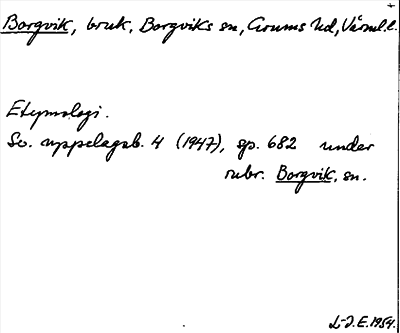 Borgvik, bruk, Borgviks sn, Grums hd, Värml. l.
Etymologi.
Sv. uppslagsb. 4 (1947), sp. 682 under
rubr. Borgvik, sn.
L-J.E. 1954.